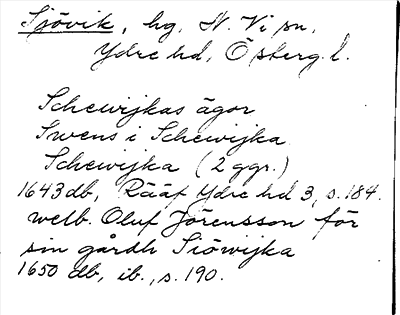 Sjövik, hg, N. Vi sn,
Ydre hd, Östergl.
Schewijkas ägor
Swens i Schewijka
Schewijka (2 ggr.)
1643 db, Rääf Ydre hd 3, s. 184.
welb. Oluf Jörensson för
sin gårdh Siöwijka
1650 db, ib., s. 190.